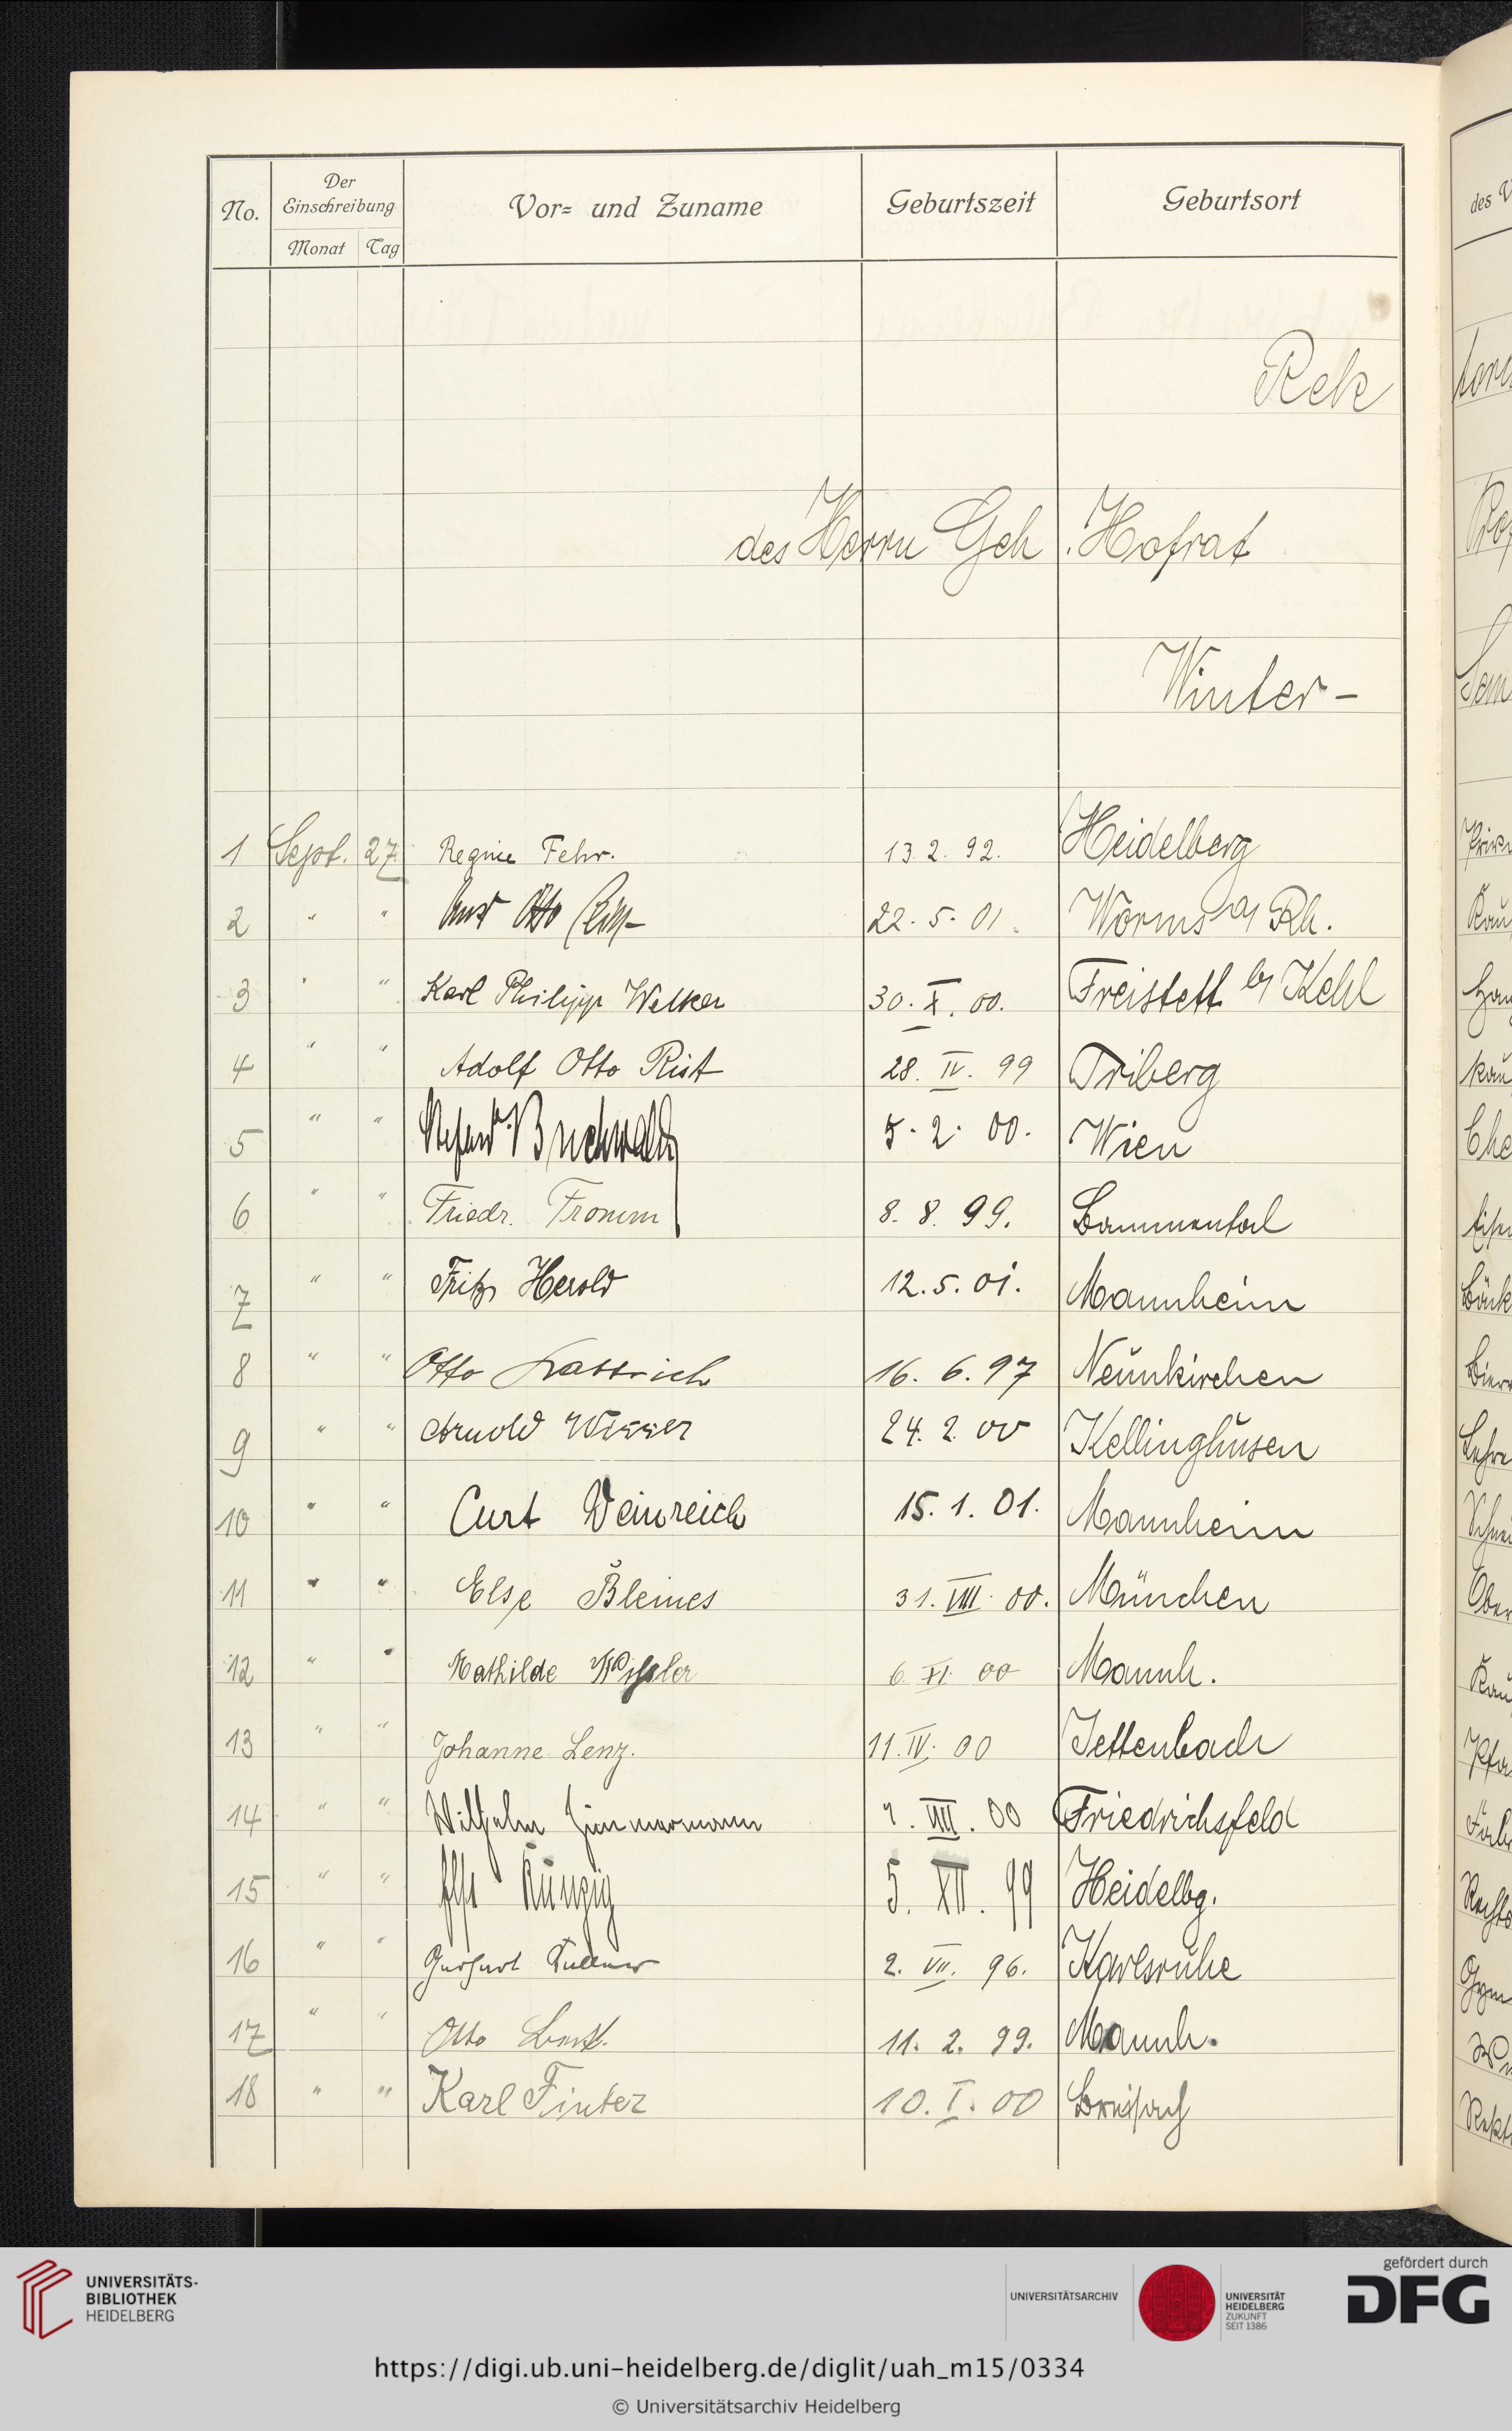 No.
Der Einschreibung
Monat Tag
Vor= und Zuname
Geburtszeit
Geburtsort
des
Rek
des Herrn Geh. Hofrat
Winter-
1 Sept. 27 Regine Fehr. 13. 2. 92. Heidelberg
2 " " Otto 22. 5. 01. Worms a/ Rh.
3 " " Karl Philipp Welker 30. X. 00. Freistett b/ Kehl
4 " " Adolf Otto Rist 28. IV. 99 Triberg
5 " " Buchwald 5. 2. 00. Wien
6 " " Friedr. Fromm 8. 8. 99. Bammental
7 " " Fritz Herold 12. 5. 01. Mannheim
8 " " Otto 16. 6. 97 Neunkirchen
9 " " Arnold Wisser 24. 2. 00 Kellinghusen
10 " " Curt Weinreich 15. 1. 01. Mannheim
11 " " Else Bleines 31. VIII. 00. München
12 " " Mathilde 6. XI. 00 Mannh.
13 " " Johanne Lenz. 11. IV. 00 Jettenbach
14 " " Wilhelm Zimmermann VIII. 00 Friedrichsfeld
15 " " Else Künzig 5. XII. 99 Heidelbg.
16 " " Gerhard 2. VII. 96. Karlsruhe
17 " " Otto 11. 2. 99. Mannh.
18 " " Karl Finter 10. I. 00 Breisach
UNIVERSITÄTS-
BIBLIOTHEK
HEIDELBERG
UNIVERSITÄTSARCHIV
UNIVERSITÄT
HEIDELBERG
ZUKUNFT
SEIT 1386
gefördert durch
DFG
https://digi.ub.uni-heidelberg.de/diglit/uah_m15/0334
© Universitätsarchiv Heidelberg